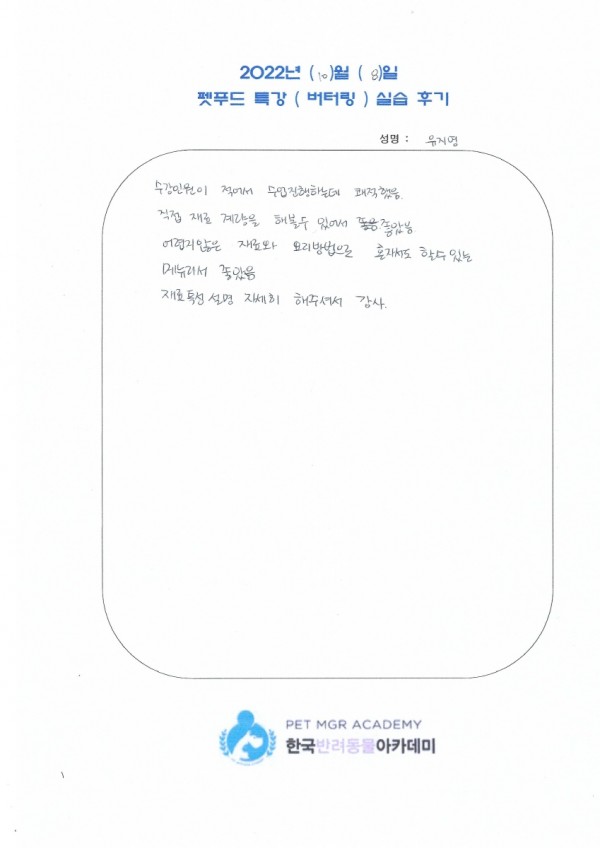 2022년 (10)월 (8)일
펫푸드 특강 ( 버터링 ) 실습 후기
성명 : 유지영
수강인원이 적어서 수업진행하는데 쾌적했음.
직접 재료 계량을 해볼수 있어서 좋았음
어렵지않은 재료와 요리방법으로 혼자서도 할수있는
메뉴라서 좋았음
재료특성 설명 자세히 해주셔서 감사.
PET MGR ACADEMY
한국반려동물아카데미